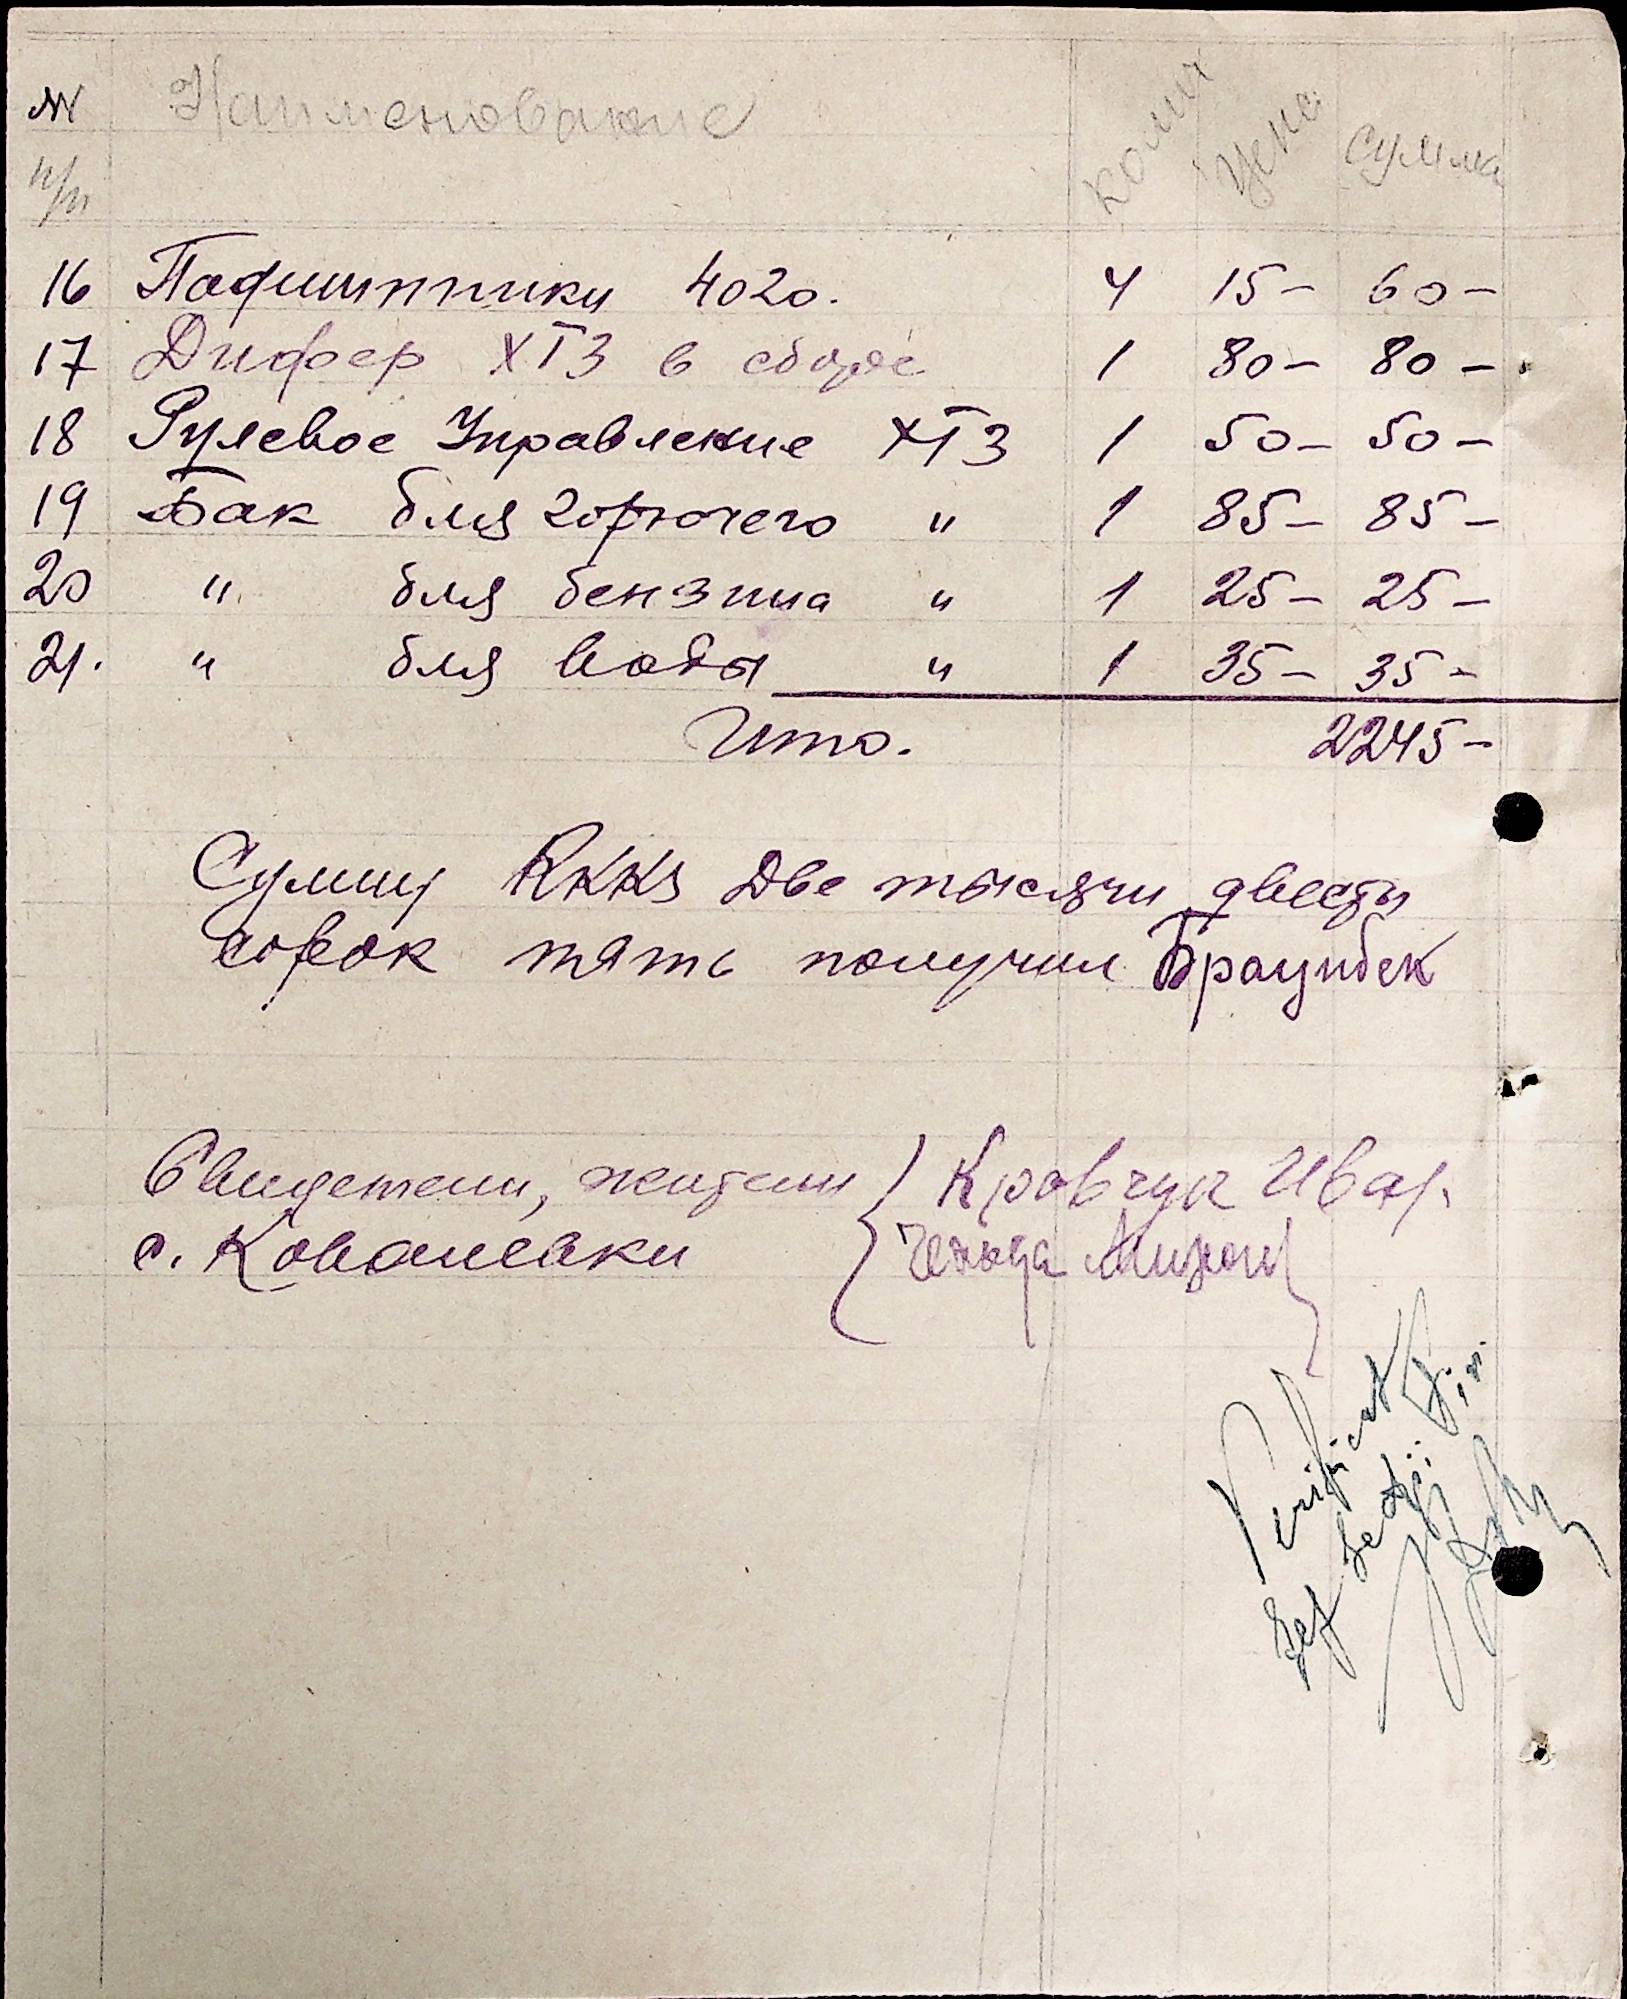 №№ Наименование колич цена сумма
п/п
16 Подшипники 4020. 4 15- 60-
17 Дифер ХТЗ в сборе 1 80- 80-
18 Рулевое Управление ХТЗ 1 50- 50-
19 Бак для горючего " 1 85- 85-
20 " для бензина " 1 25- 25-
21. " для воды " 1 35- 35-
Ито. 2245-
Сумму RKKS Две тысячи двести
сорок пять получил Браунбек
Свидетели, жители Кровчук Иван.
с. Ковалевки Мирон
Verificat
Șef